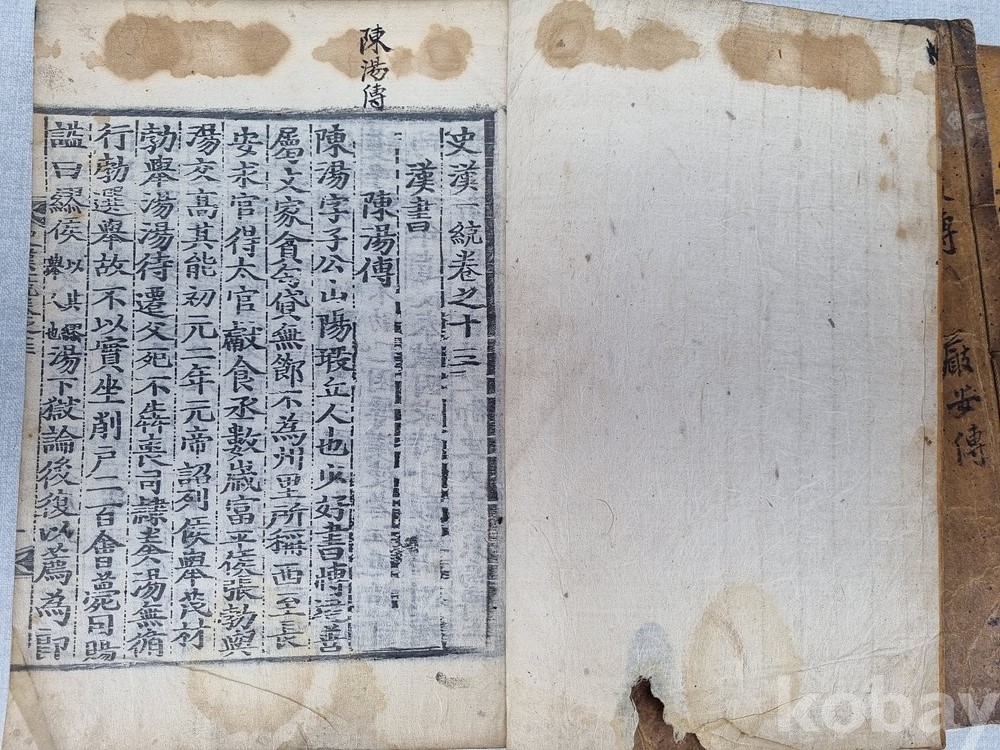 陳湯傳
史漢一統卷之十三
漢書
陳湯傳
陳湯字子公山陽瑕丘人也少好書博達善
屬文家貧匄貸無節不為州里所稱西至長
安求官得太官獻食丞數歲富平侯張勃與
湯交高其能初元二年元帝詔列侯舉茂材
勃舉湯湯待遷父死不犇喪司隸奏湯無循
行勃選舉故不以實坐削戶二百會薨因賜
諡曰繆侯以其繆舉人也湯下獄論後復以薦為郎
安傳
kobay